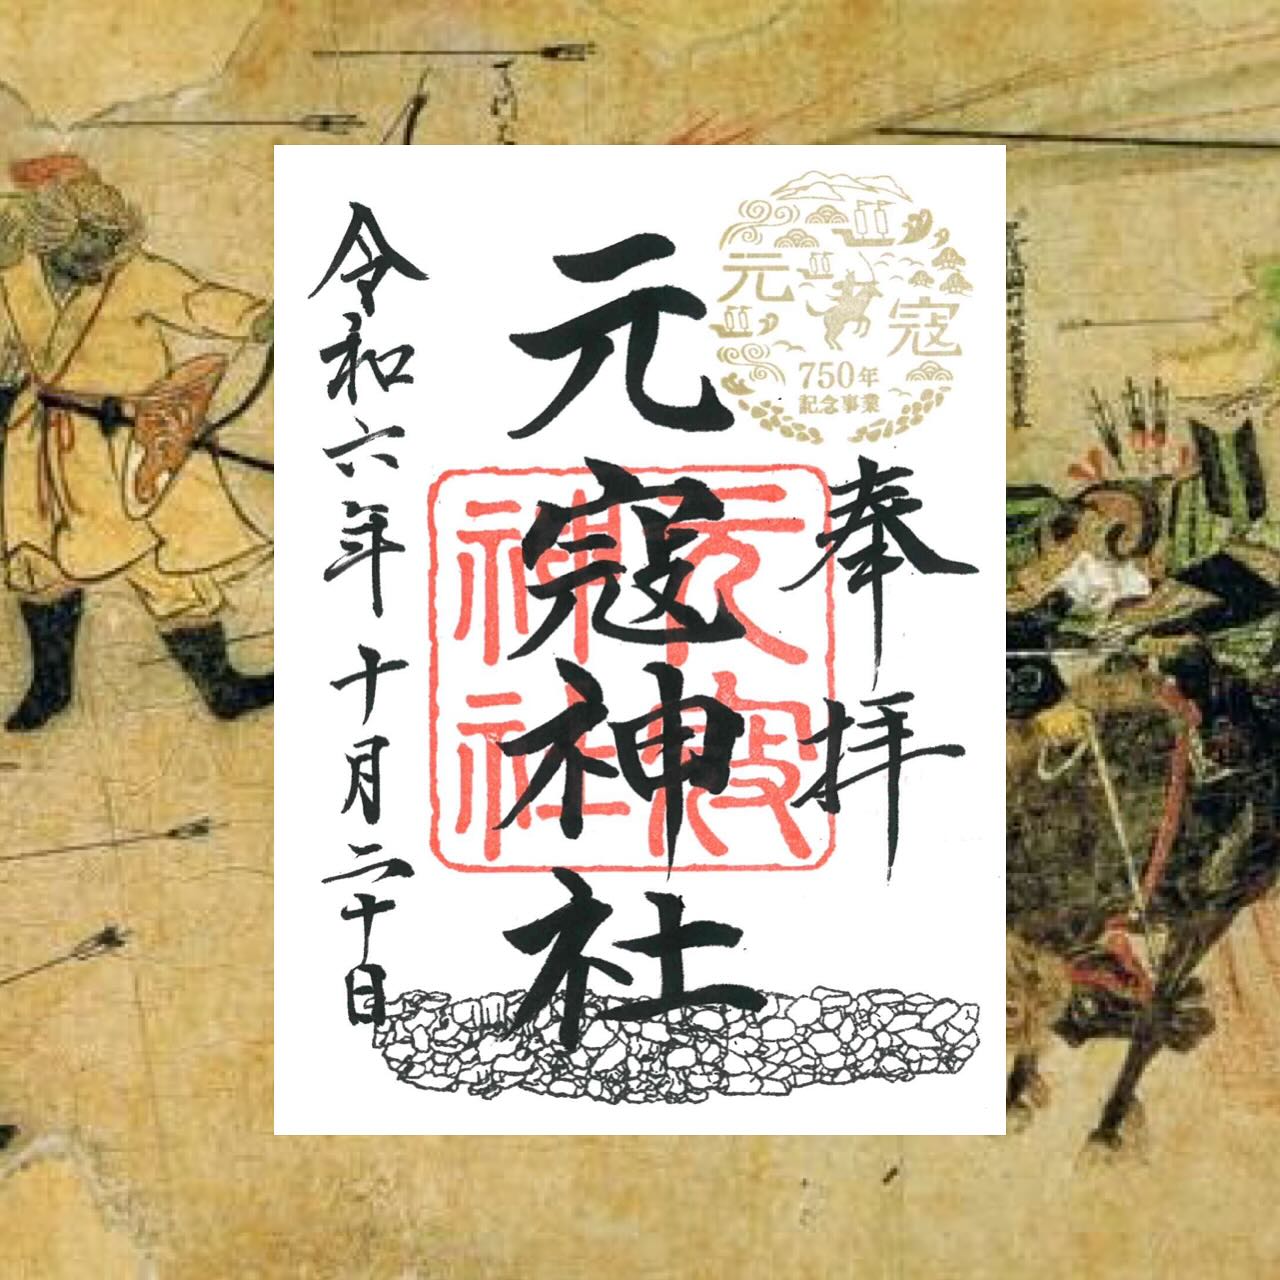 奉拝
元寇
750年
記念事業
元寇神社
元寇
神社
令和六年十月二十日